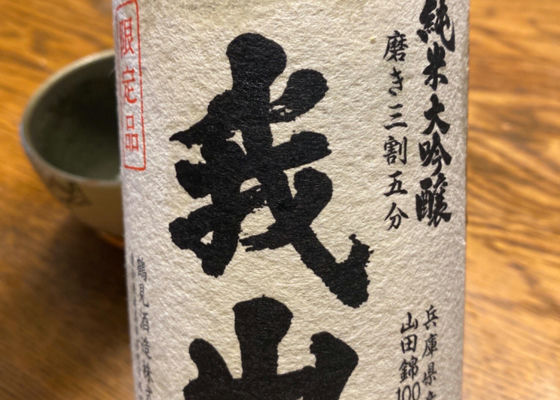 純米大吟醸
磨き三割五分
兵庫県
山田錦100
我山
限定品
鶴見酒造株式